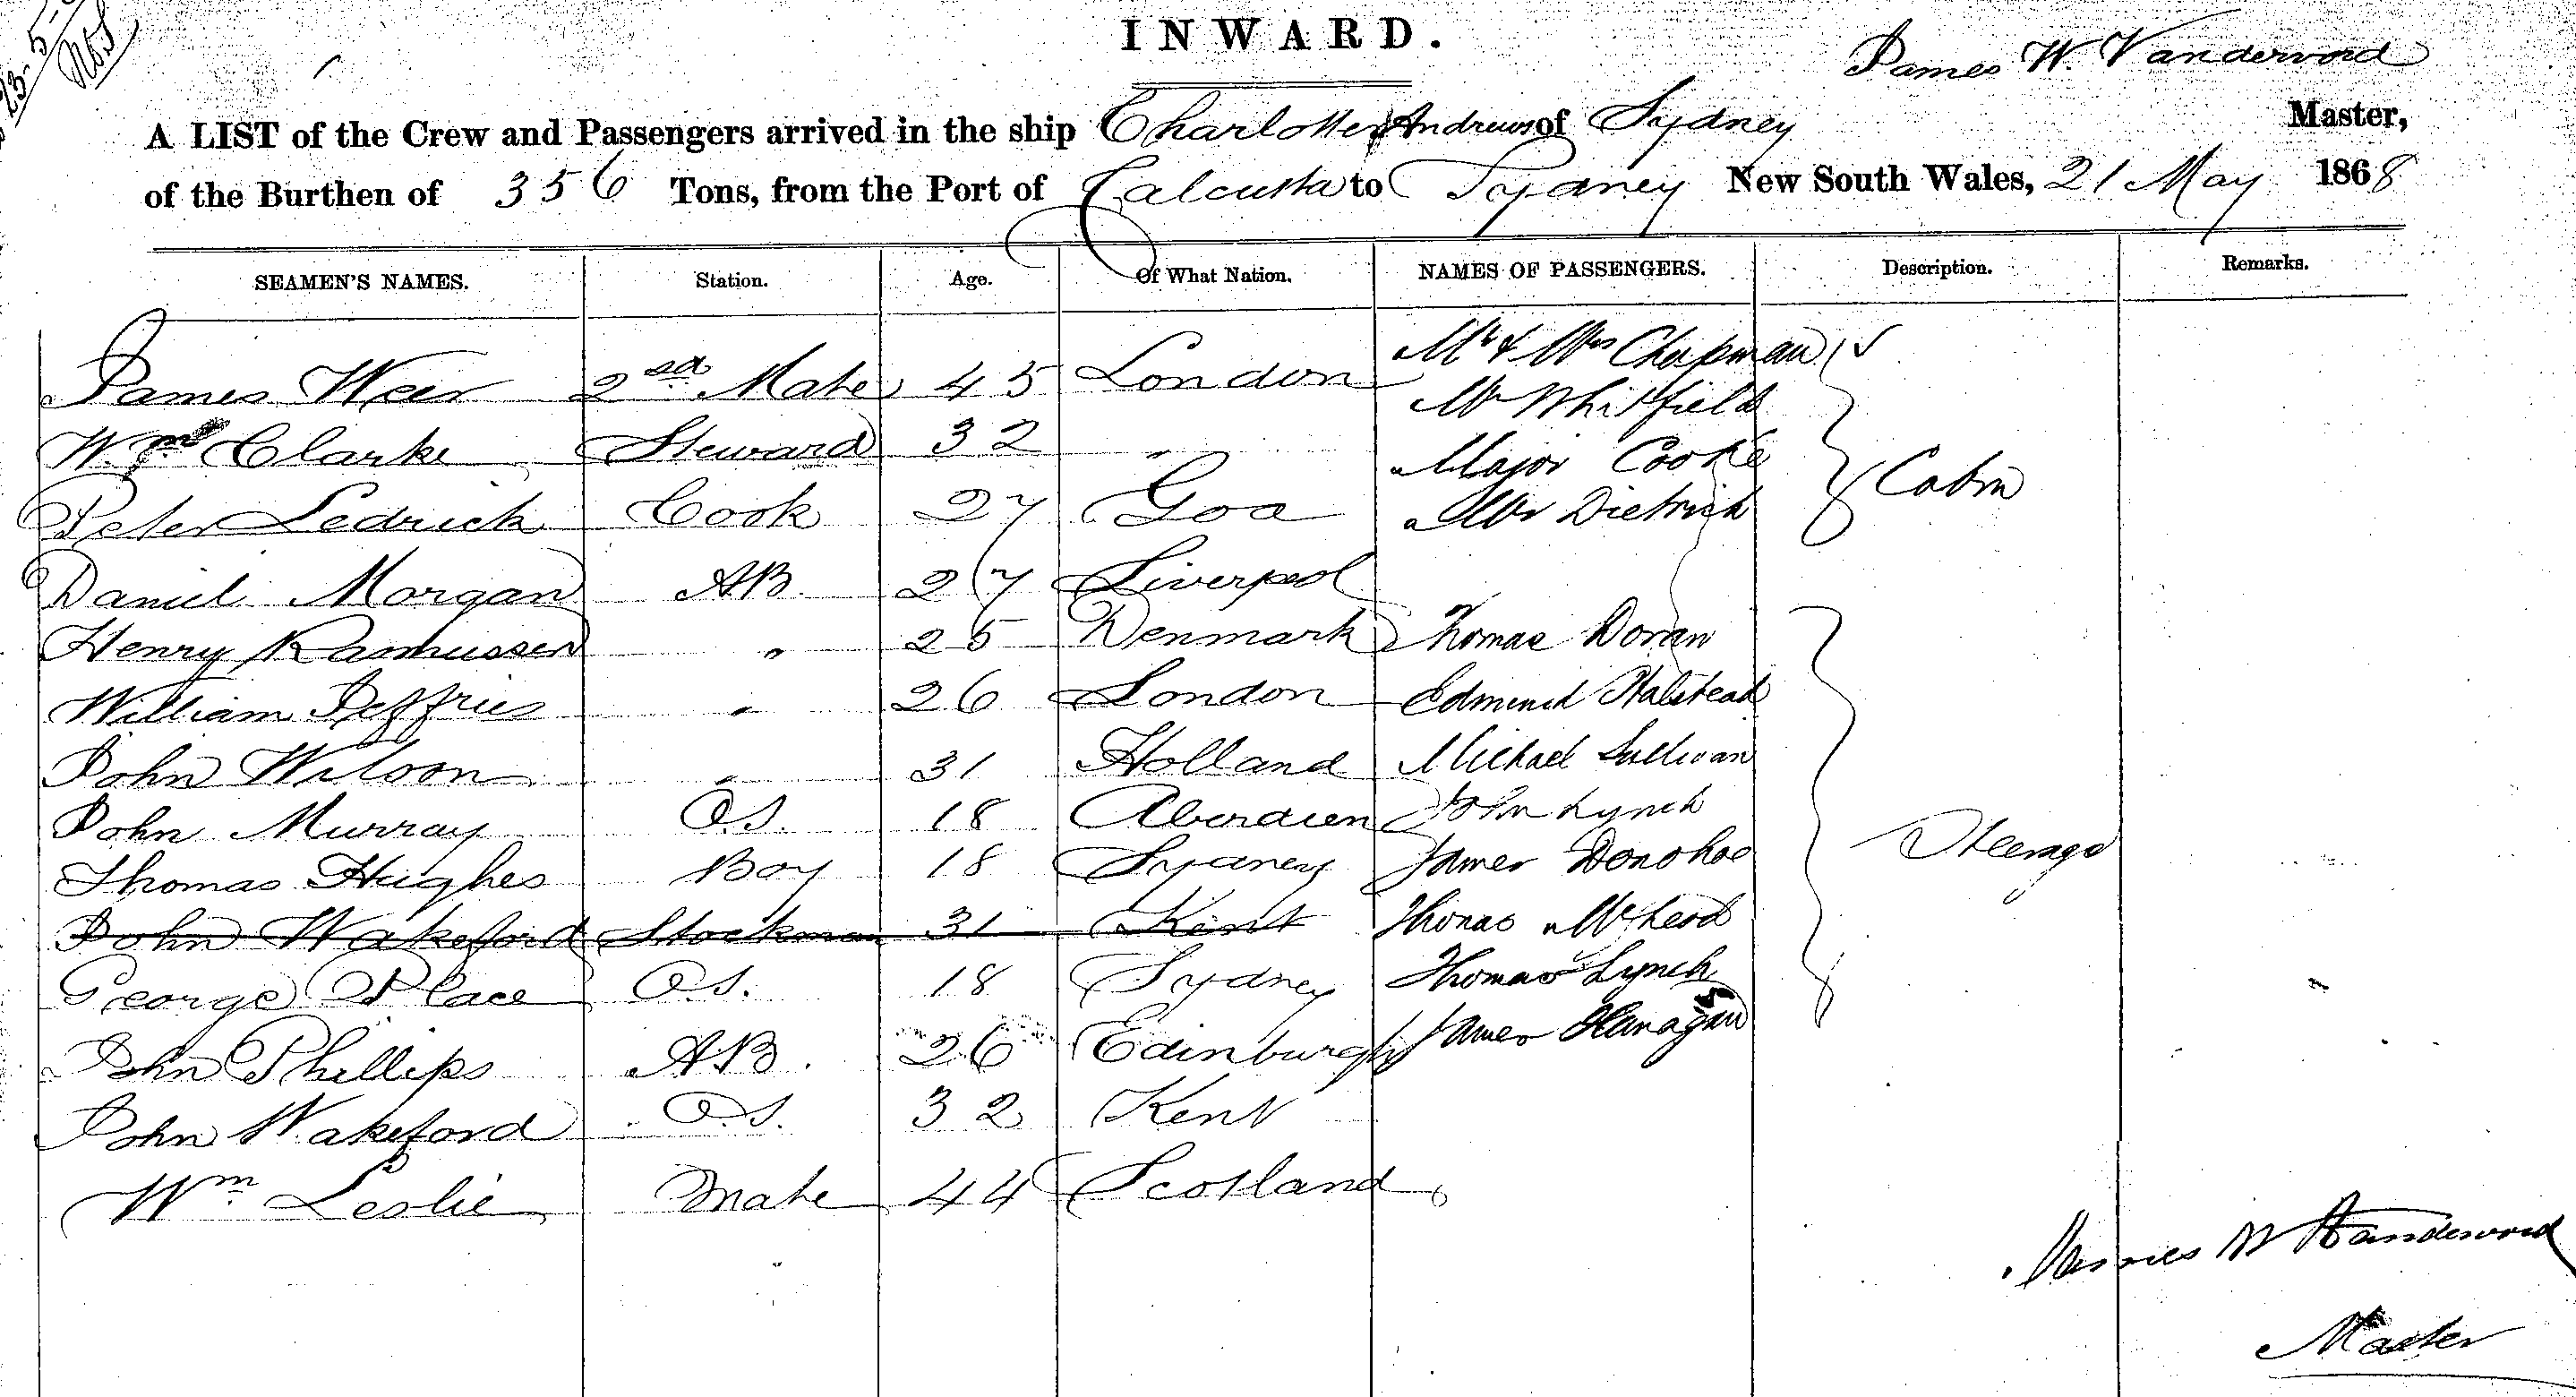 INWARD.
James W. Vanderword
A LIST of the Crew and Passengers arrived in the ship Charlotte Andrews of Sydney Master,
of the Burthen of 356 Tons, from the Port of Calcutta to Sydney New South Wales, 21 May 1868
SEAMEN'S NAMES. Station. Age. Of What Nation. NAMES OF PASSENGERS. Description. Remarks.
James Weir 2nd Mate 45 London Mr & Mrs Chapman
Mr Whitfield
Wm Clarke Steward 32 " Major Cooke
Cabin
Peter Ledrick Cook 27 Goa Mr Dietrich
Daniel Morgan AB 27 Liverpool
Henry Rasmussen " 25 Denmark Thomas Doran
William Jeffries " 26 London Edmund Halstead
John Wilson " 31 Holland Michael Sullivan
John Murray O.S. 18 Aberdeen John Lynch
Thomas Hughes Boy 18 Sydney James Donohoe Steerage
John Wakeford Stockman 31 Kent Thomas McLeod
George Place O.S. 18 Sydney Thomas Lynch
John Phillips AB. 26 Edinburgh James Flanagan
John Wakeford O.S. 32 Kent
Wm Leslie Mate 44 Scotland
James W Vanderword
Master